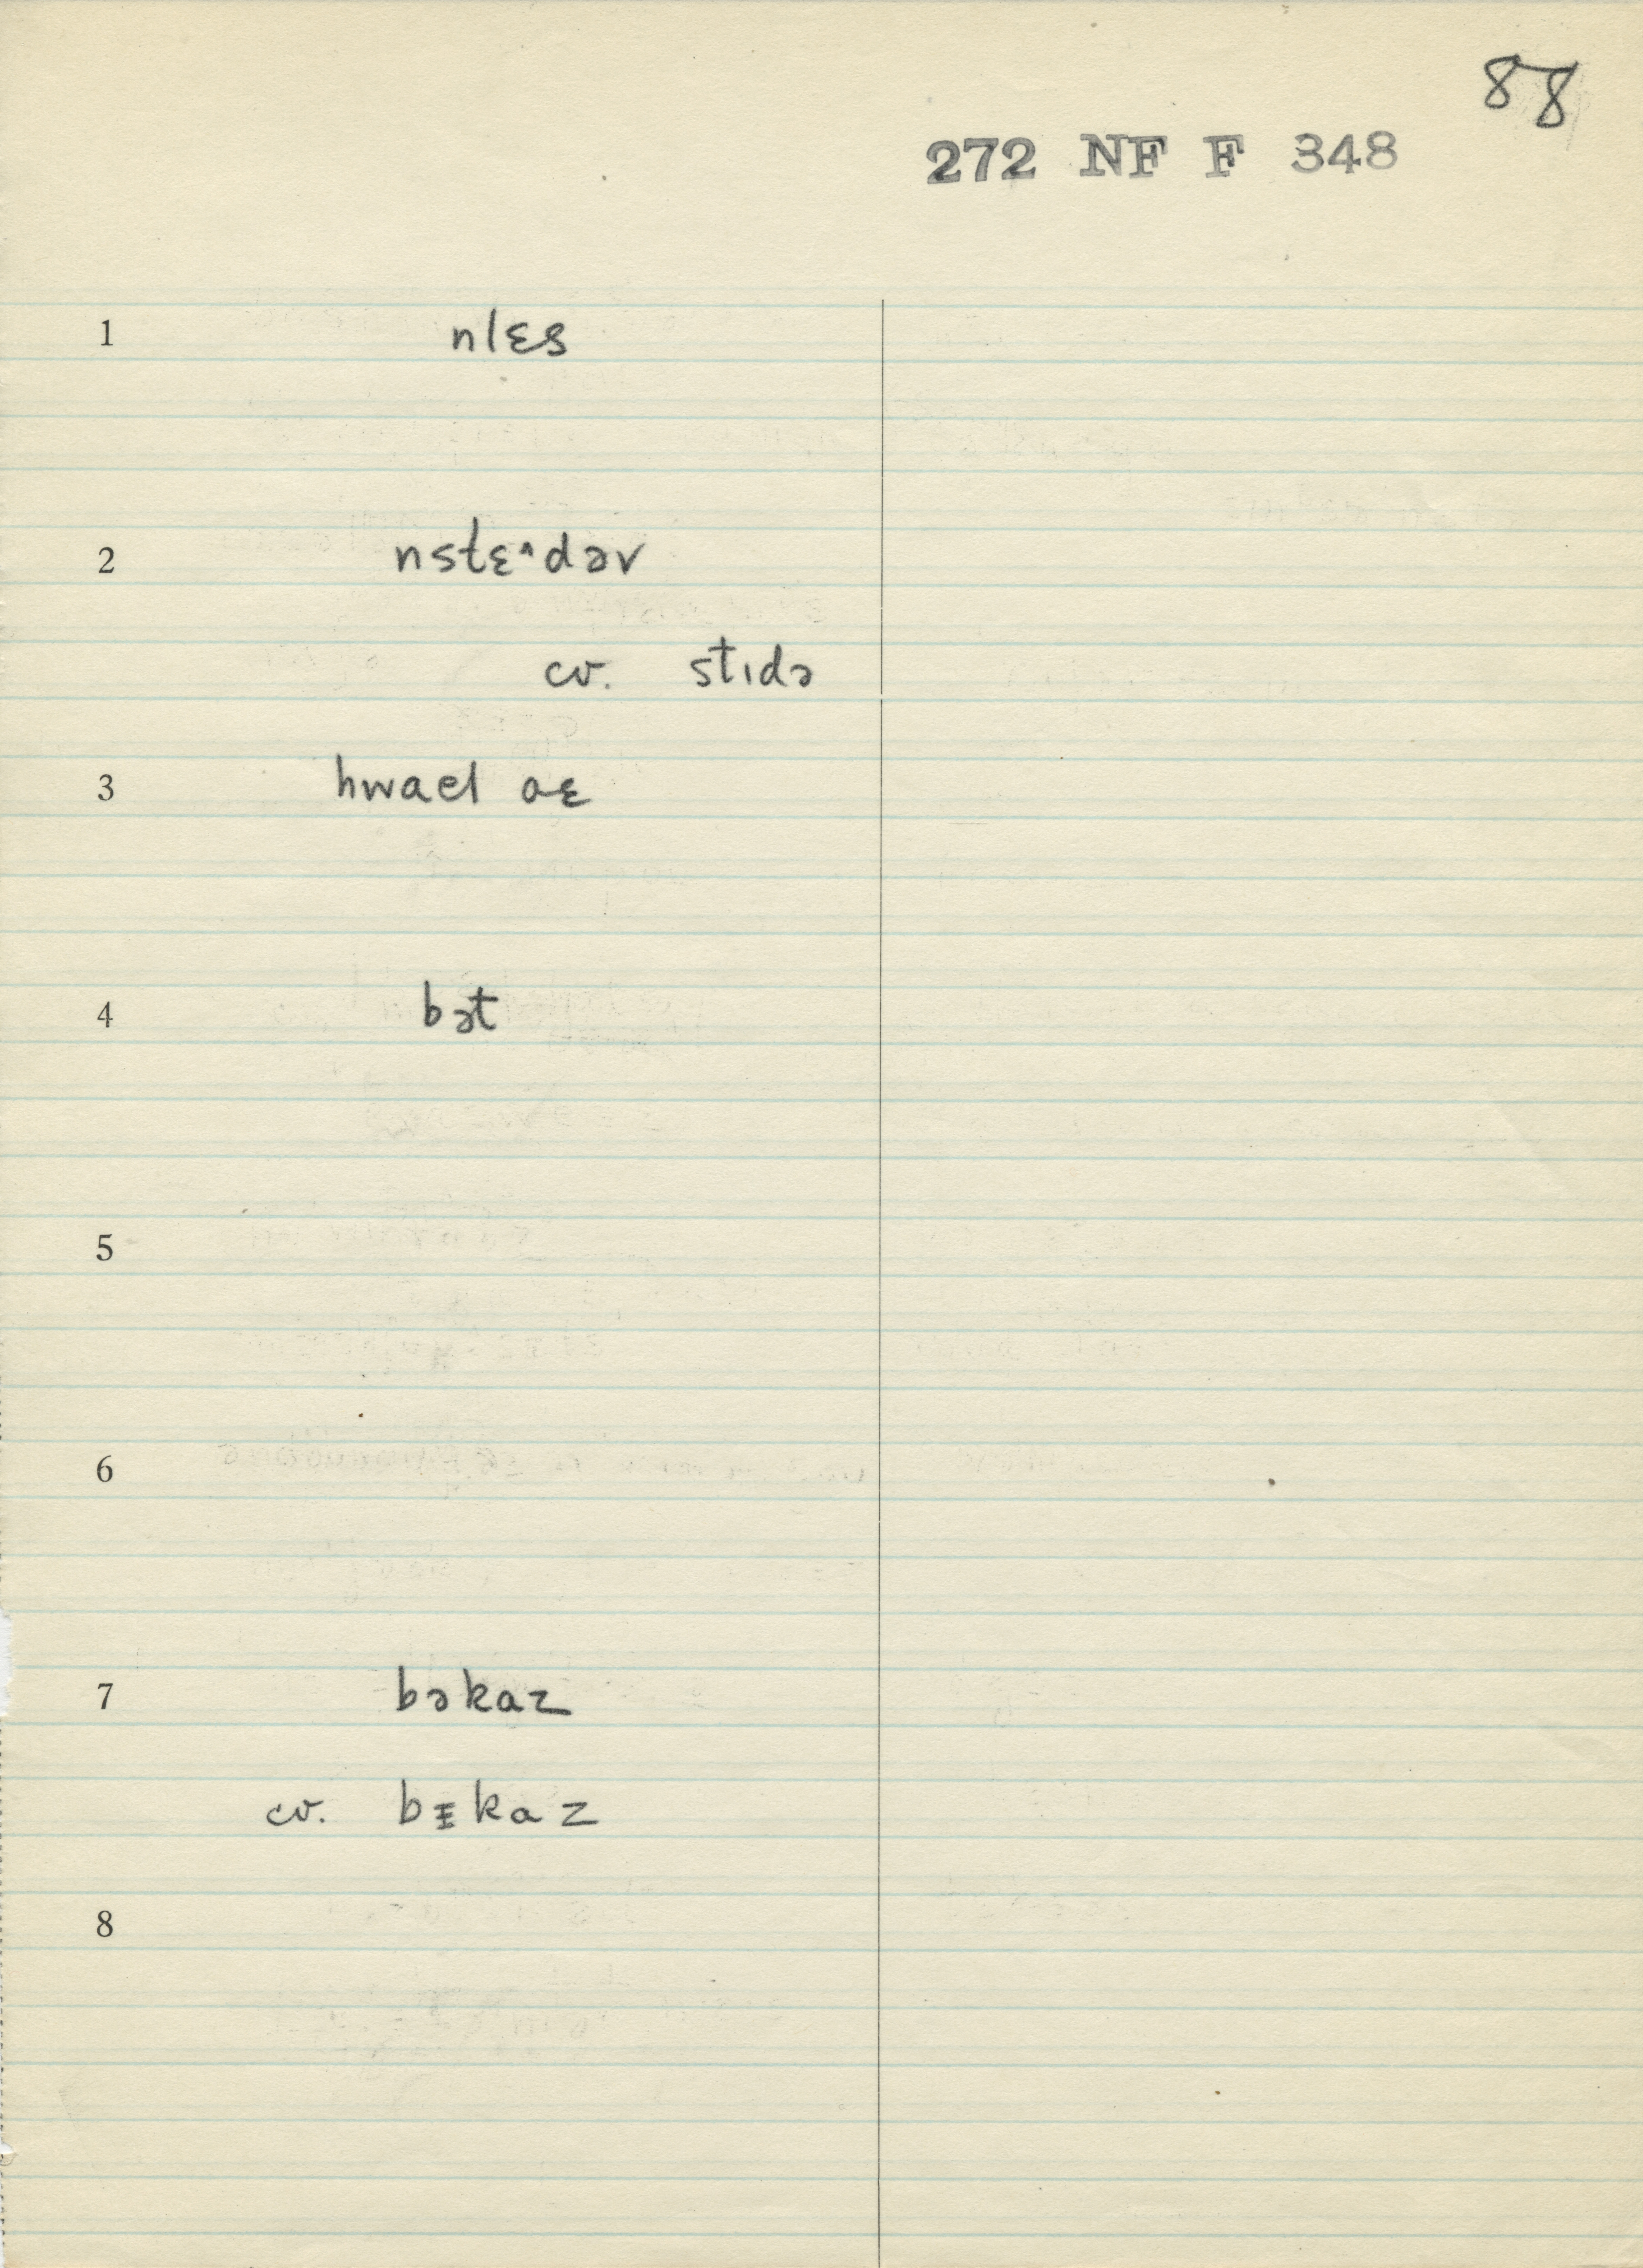 88
272 NF F 348
1 nlɛs
2 nstɛ^dəv
cv. stıdə
3 hwael aɛ
4 bət
5
6
7 bəkaz
cv. bᵻkaz
8